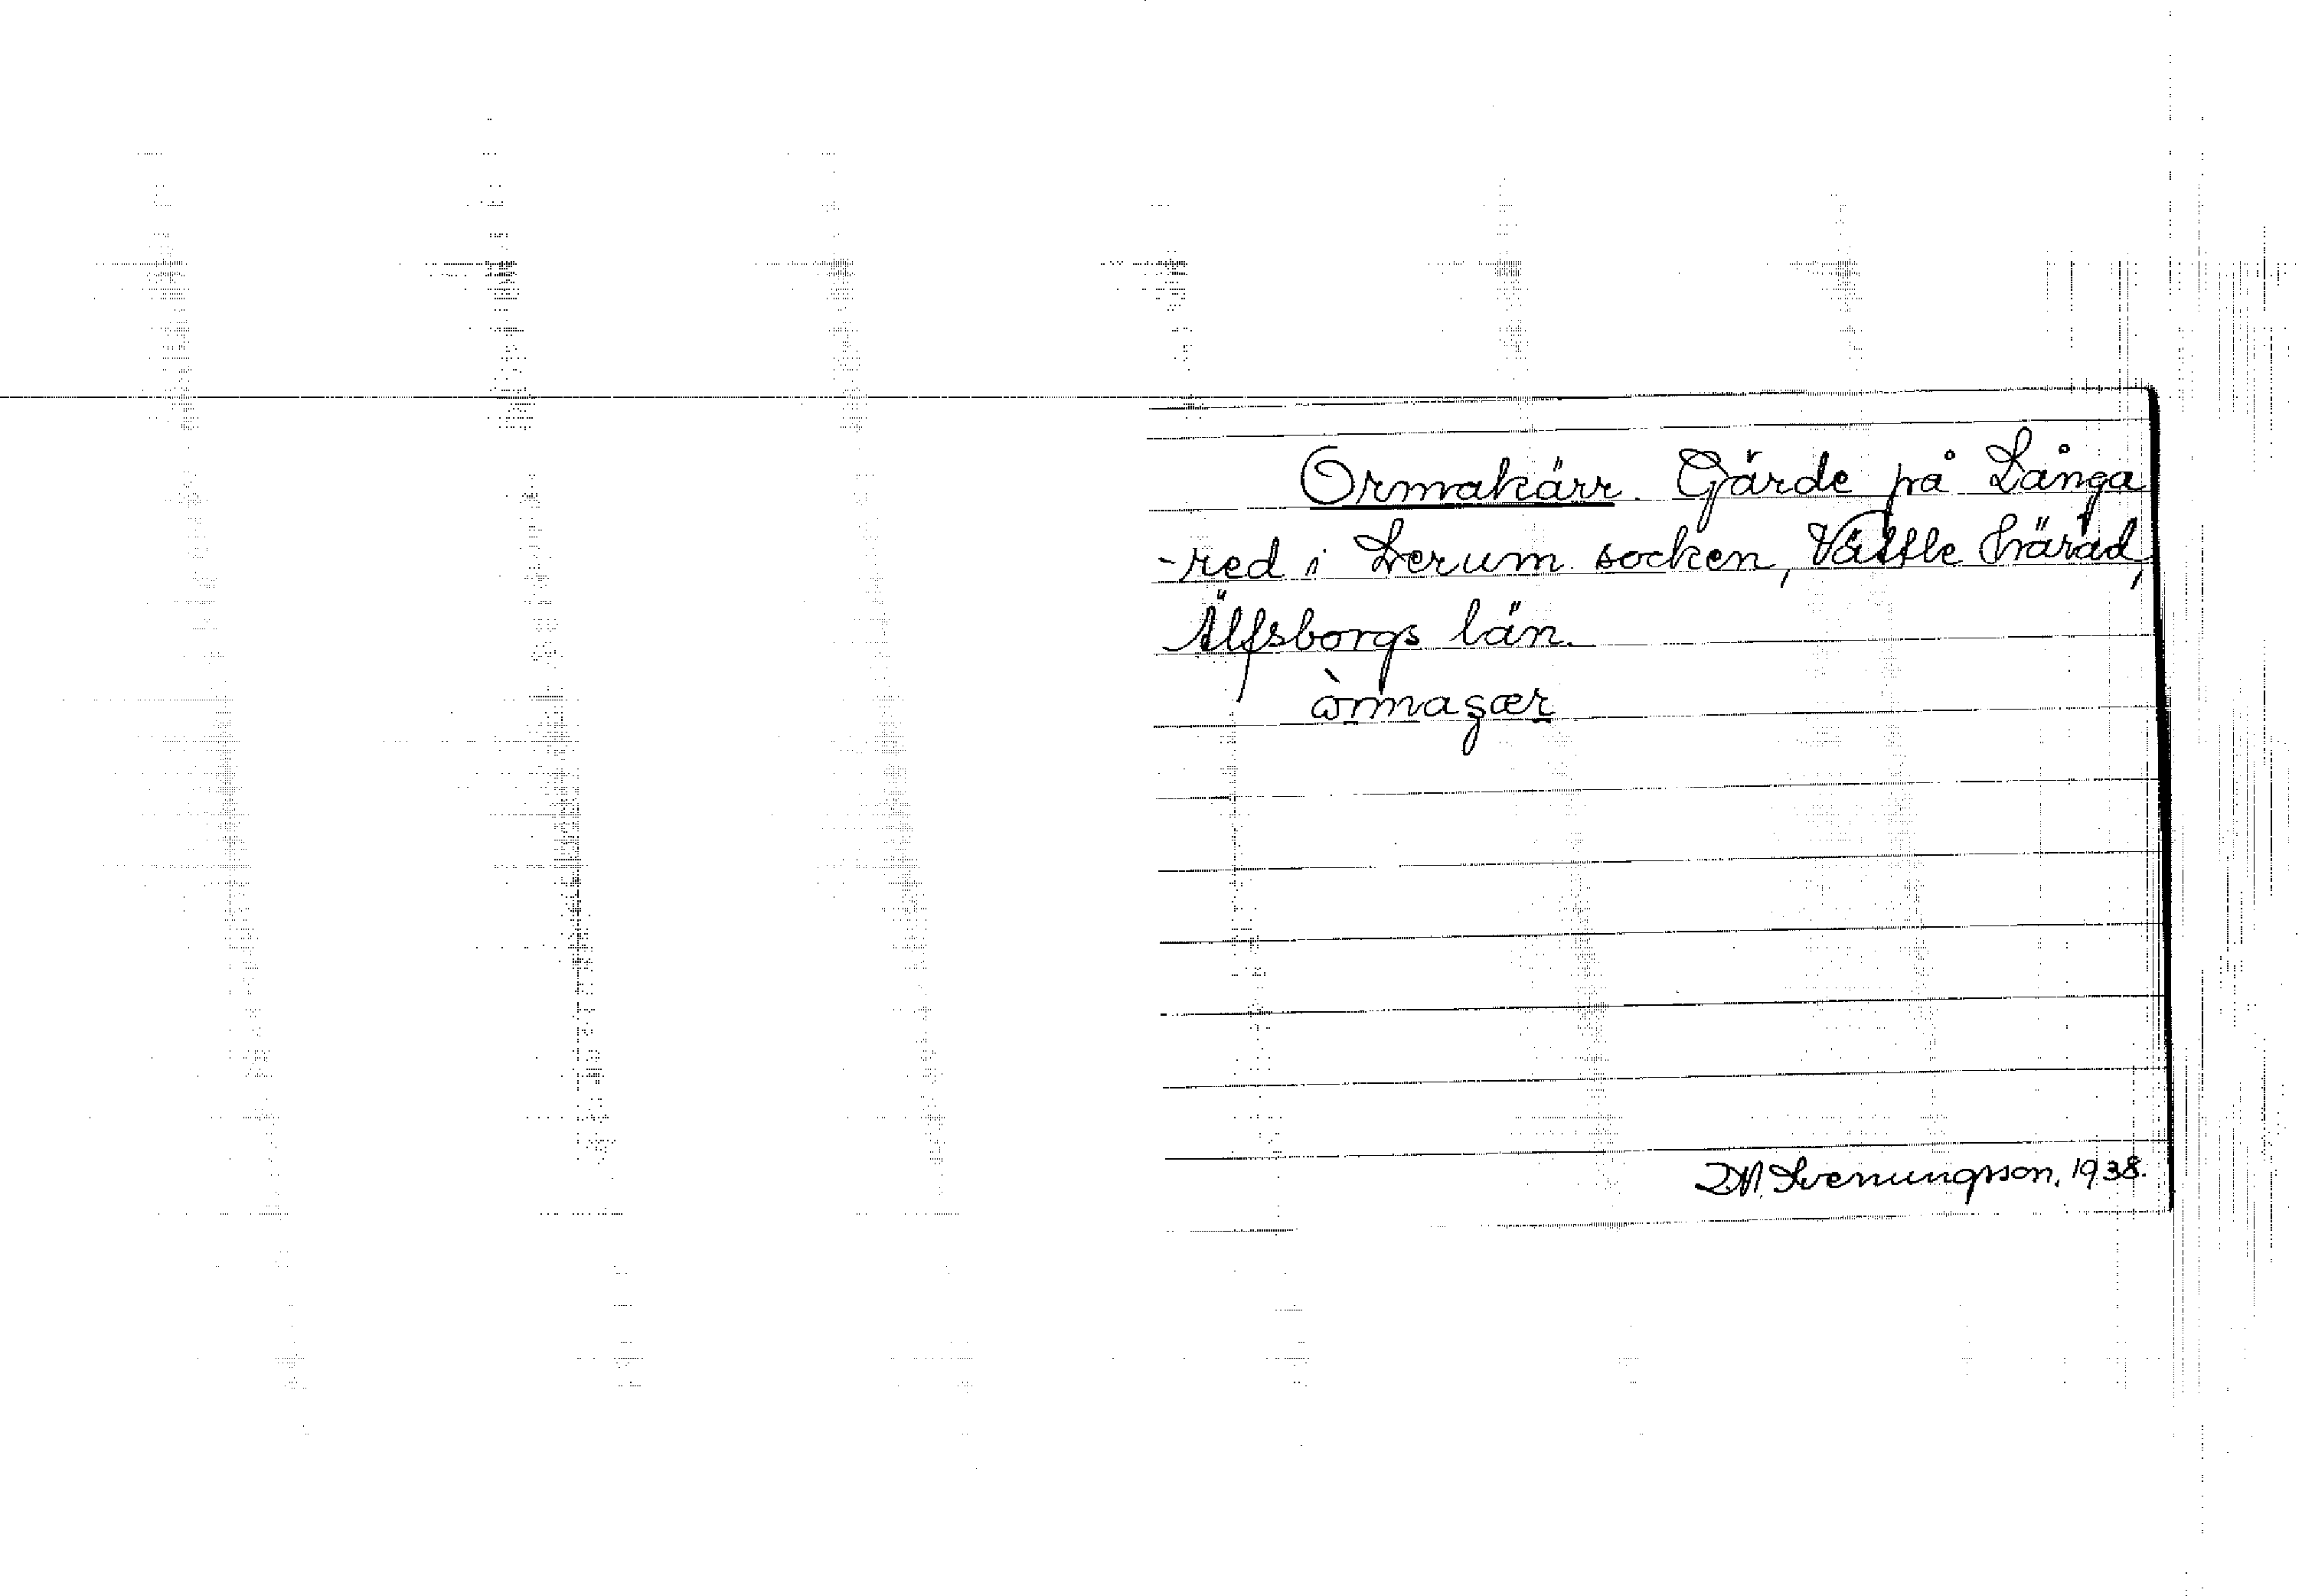 Ormakärr. Gärde på Långa
-red i Lerum socken, Vättle härad,
Älfsborgs län.
Svenungsson, 1938.